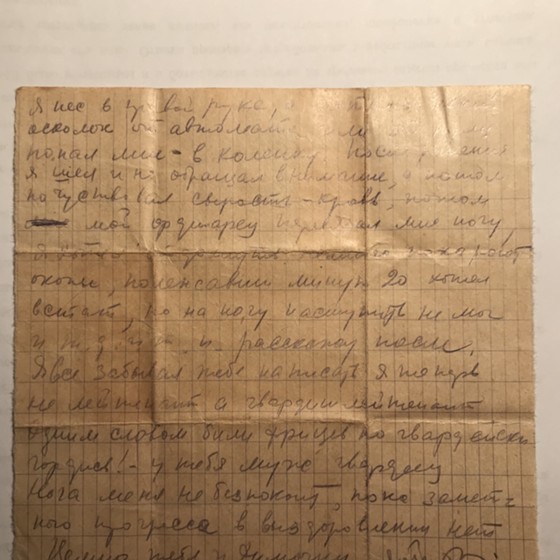 Я нес в правой руке, а
осколок от автомата или
попал мне - в коленку после
я шел и не обращал внимание, а потом
почуствовал сырость - кровь, потом
мой ординарец перевязал мне ногу,
Я
окопы, полежавши минут 20 хотел
встать, но на ногу наступить не мог
и т.д. и т.п. расскажу после.
Я все забывал тебе написать я теперь
не лейтенант а гвардии лейтенант
Одним словом били фрицев по гвардейски
гордись! - у тебя муж гвардеец
Нога меня не беспокоит, пока замет-
ного прогреса в выздоровлении нет
Целую тебя и